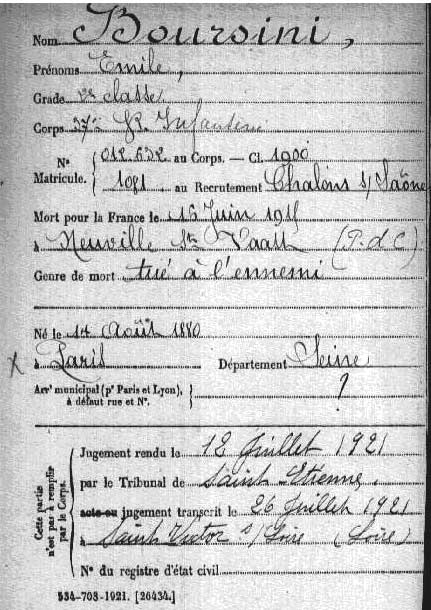 Nom Boursini,
Prénoms Emile,
Grade 2e classe
Corps 37e Rt. Infanterie
N° 012.532 au Corps. — Cl. 1900
Matricule. 1081 au Recrutement Chalons s/ Saône
Mort pour la France le 16 Juin 1915
à Neuville St. Vaast (P. d C)
Genre de mort tué à l'ennemi
Né le 14 Août 1880
X à Paris Département Seine
Arrt municipal (pr Paris et Lyon), à défaut rue et N°. ?
Cette partie n'est pas à remplir par le Corps.
Jugement rendu le 12 Juillet 1921
par le Tribunal de Saint-Etienne
acte ou jugement transcrit le 26 Juillet 1921
à Saint Victor s/ Loire (Loire)
N° du registre d'état civil
534-708-1921. [26434.]